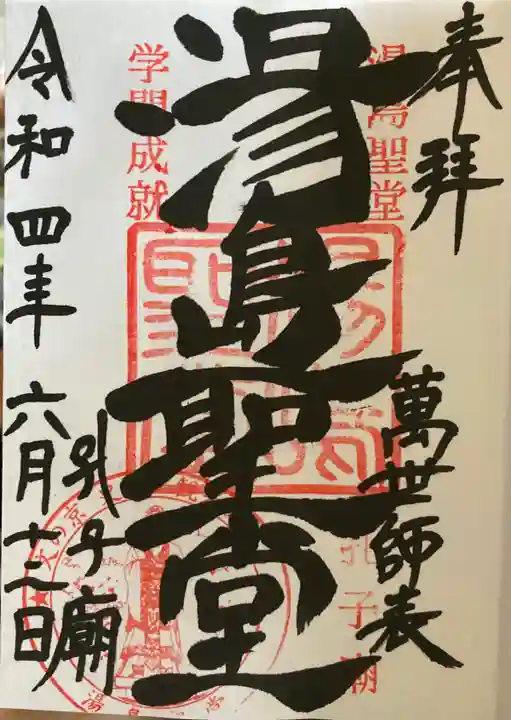 奉拜
萬世師表
湯島聖堂
孔子廟
湯島聖堂
孔子廟
学問成就
令和四年 六月十三日